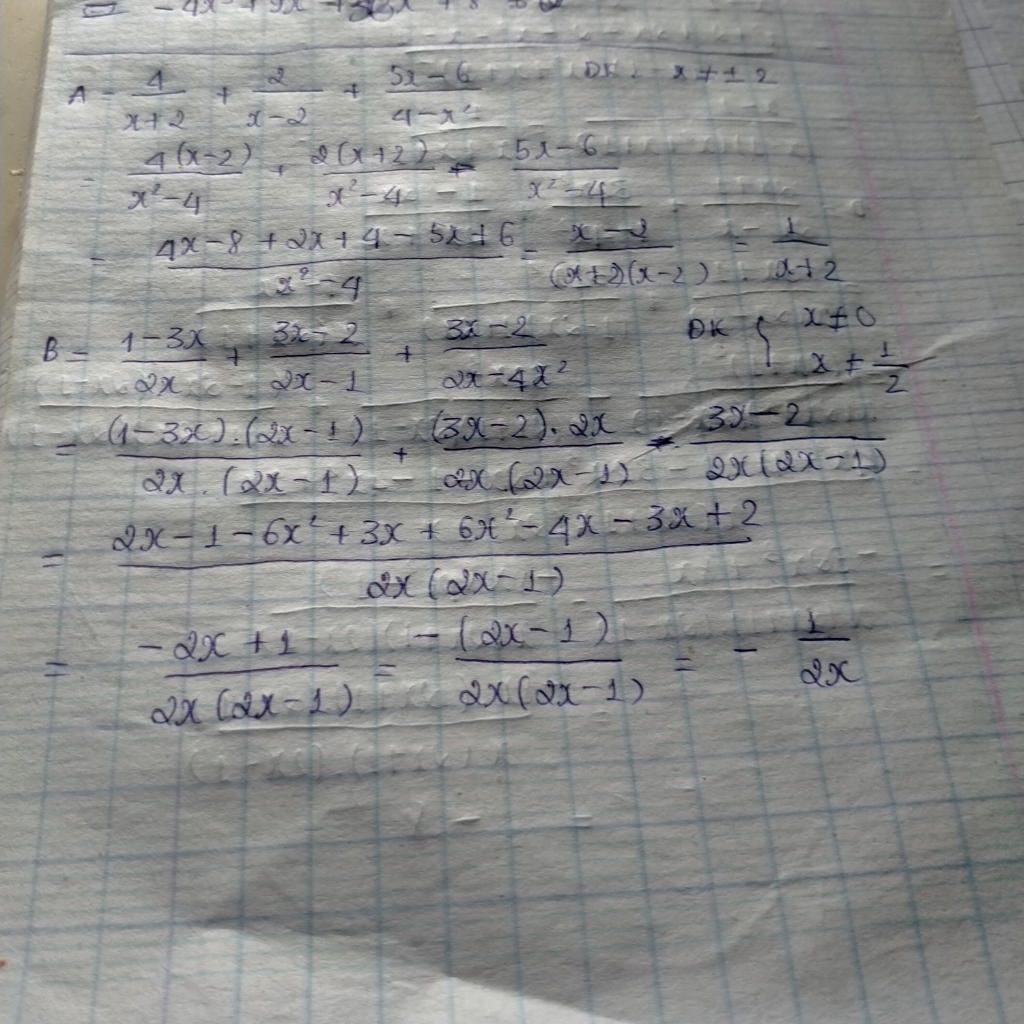 A = 4/(x+2) + 2/(x-2) + (5x-6)/(4-x²) ĐK: x ≠ ±2
= 4(x-2)/(x²-4) + 2(x+2)/(x²-4) - (5x-6)/(x²-4)
= (4x-8+2x+4-5x+6)/(x²-4) = (x-2)/((x+2)(x-2)) = 1/(x+2)
B = (1-3x)/(2x) + (3x-2)/(2x-1) + (3x-2)/(2x-4x²) ĐK { x ≠ 0
x ≠ 1/2
= (1-3x).(2x-1)/(2x.(2x-1)) + (3x-2).2x/(2x.(2x-1)) - (3x-2)/(2x(2x-1))
= (2x-1-6x²+3x+6x²-4x-3x+2)/(2x(2x-1))
= (-2x+1)/(2x(2x-1)) = -(2x-1)/(2x(2x-1)) = - 1/(2x)